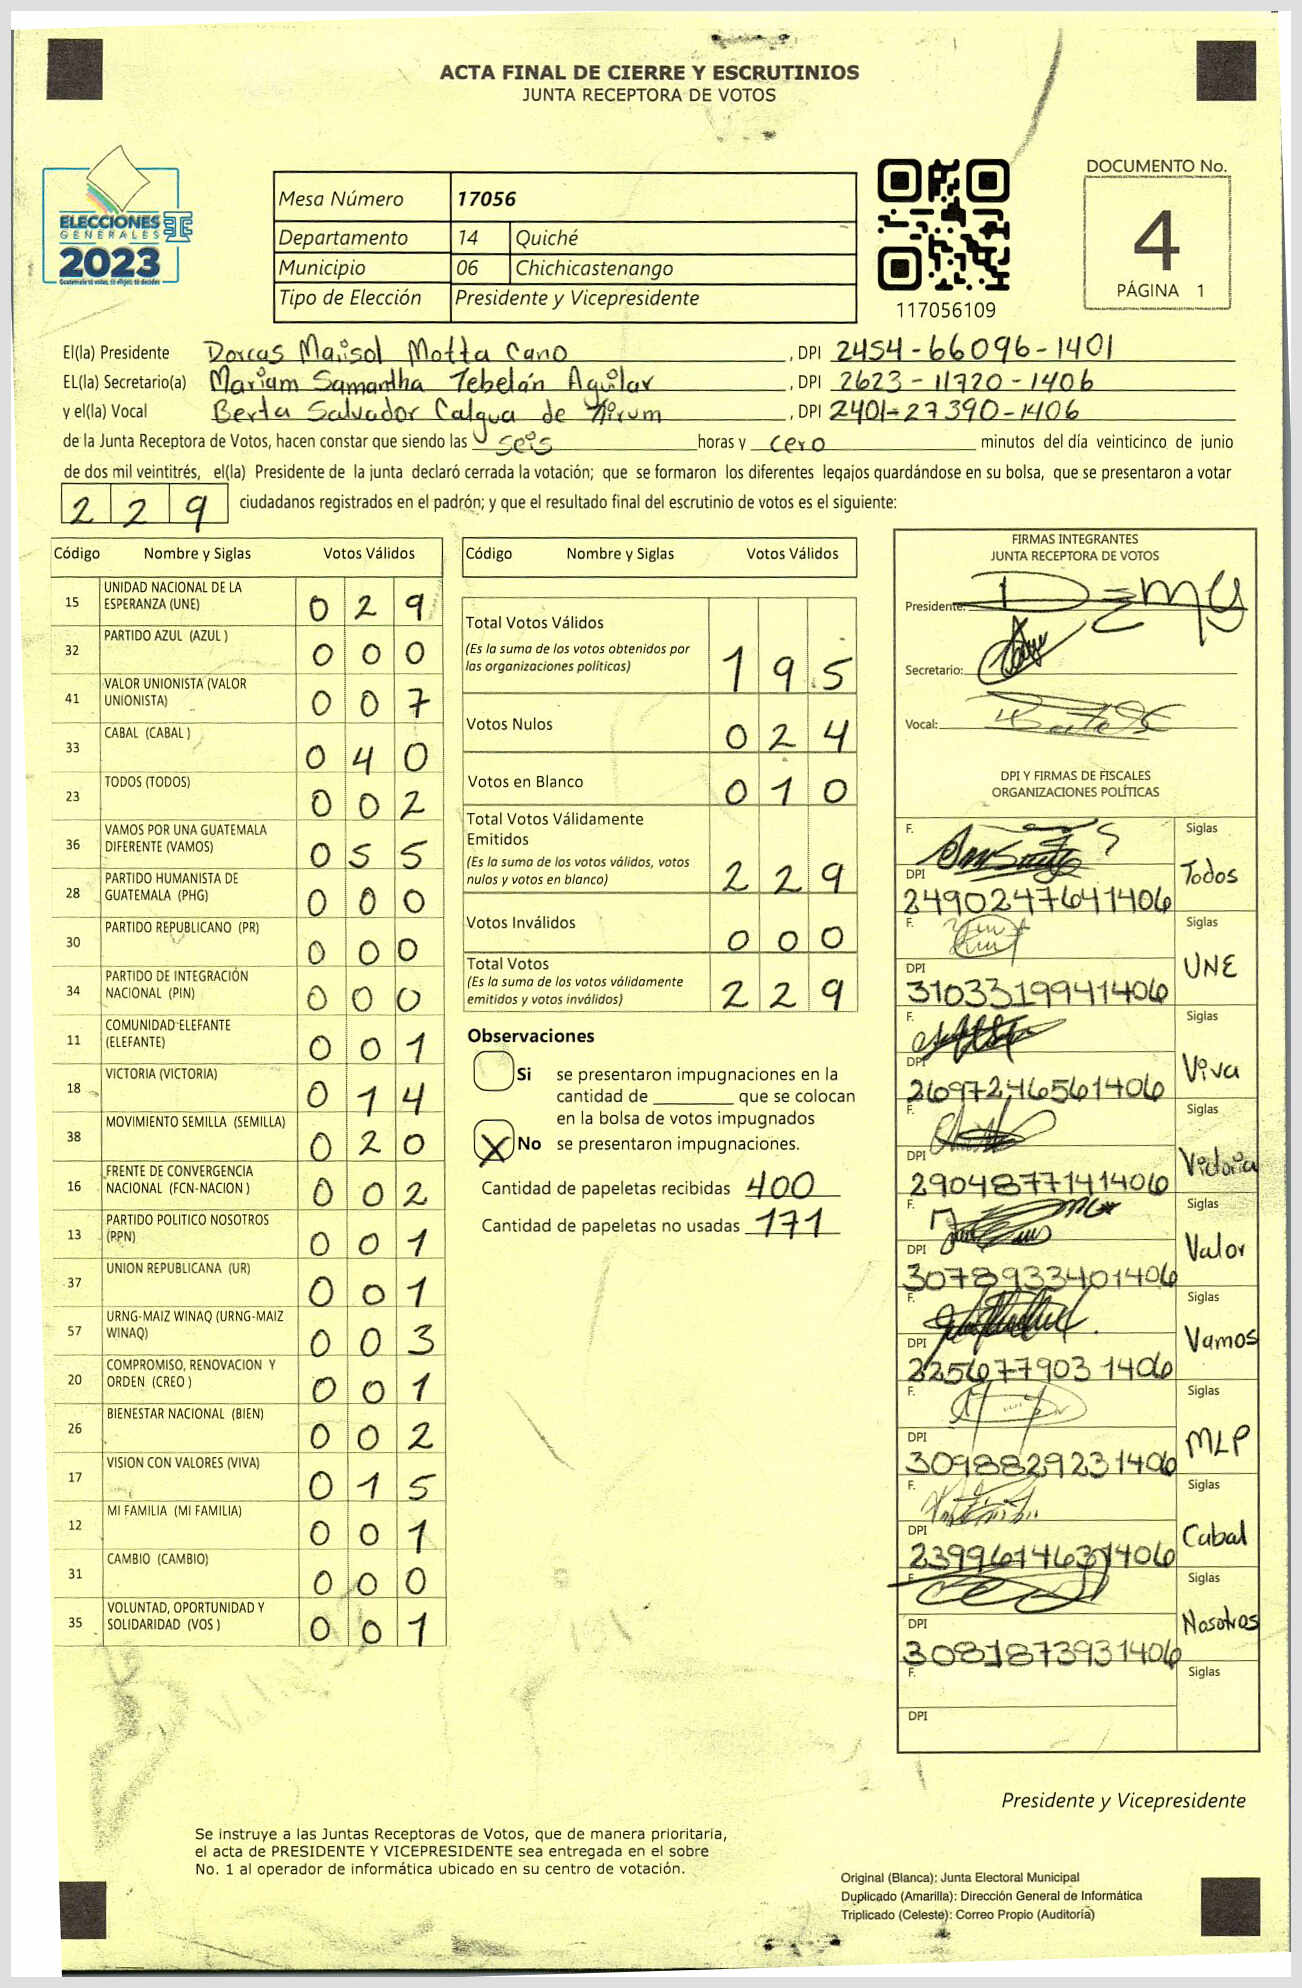 ACTA FINAL DE CIERRE Y ESCRUTINIOS
JUNTA RECEPTORA DE VOTOS
ELECCIONES
GENERALES
2023
Mesa Número 17056
Departamento 14 Quiché
Municipio 06 Chichicastenango
Tipo de Elección Presidente y Vicepresidente
117056109
DOCUMENTO No.
4
PÁGINA 1
El(la) Presidente Dorcas Marisol Motta Cano, DPI 2454-66096-1401
EL(la) Secretario(a) Mariam Samantha Tebelán Aguilar, DPI 2623-11720-1406
y el(la) Vocal Berta Salvador Calgua de, DPI 2401-27390-1406
de la Junta Receptora de Votos, hacen constar que siendo las seis horas y cero minutos del día veinticinco de junio
de dos mil veintitrés, el(la) Presidente de la junta declaró cerrada la votación; que se formaron los diferentes legajos guardándose en su bolsa, que se presentaron a votar
229 ciudadanos registrados en el padrón; y que el resultado final del escrutinio de votos es el siguiente:
Código Nombre y Siglas Votos Válidos
15 UNIDAD NACIONAL DE LA ESPERANZA (UNE) 029
32 PARTIDO AZUL (AZUL ) 000
41 VALOR UNIONISTA (VALOR UNIONISTA) 007
33 CABAL (CABAL ) 040
23 TODOS (TODOS) 002
36 VAMOS POR UNA GUATEMALA DIFERENTE (VAMOS) 055
28 PARTIDO HUMANISTA DE GUATEMALA (PHG) 000
30 PARTIDO REPUBLICANO (PR) 000
34 PARTIDO DE INTEGRACIÓN NACIONAL (PIN) 000
11 COMUNIDAD ELEFANTE (ELEFANTE) 001
18 VICTORIA (VICTORIA) 014
38 MOVIMIENTO SEMILLA (SEMILLA) 020
16 FRENTE DE CONVERGENCIA NACIONAL (FCN-NACION ) 002
13 PARTIDO POLITICO NOSOTROS (PPN) 001
37 UNION REPUBLICANA (UR) 001
57 URNG-MAIZ WINAQ (URNG-MAIZ WINAQ) 003
20 COMPROMISO, RENOVACION Y ORDEN (CREO ) 001
26 BIENESTAR NACIONAL (BIEN) 002
17 VISION CON VALORES (VIVA) 015
12 MI FAMILIA (MI FAMILIA) 001
31 CAMBIO (CAMBIO) 000
35 VOLUNTAD, OPORTUNIDAD Y SOLIDARIDAD (VOS ) 001
Código Nombre y Siglas Votos Válidos
Total Votos Válidos 195
(Es la suma de los votos obtenidos por
las organizaciones políticas)
Votos Nulos 024
Votos en Blanco 010
Total Votos Válidamente
Emitidos 229
(Es la suma de los votos válidos, votos
nulos y votos en blanco)
Votos Inválidos 000
Total Votos 229
(Es la suma de los votos válidamente
emitidos y votos inválidos)
Observaciones
Si se presentaron impugnaciones en la
cantidad de ________ que se colocan
en la bolsa de votos impugnados
X No se presentaron impugnaciones.
Cantidad de papeletas recibidas 400
Cantidad de papeletas no usadas 171
FIRMAS INTEGRANTES
JUNTA RECEPTORA DE VOTOS
Presidente:
Secretario:
Vocal:
DPI Y FIRMAS DE FISCALES
ORGANIZACIONES POLÍTICAS
F. Siglas
Todos
DPI
2490247641406
F. Siglas
UNE
DPI
3103319941406
F. Siglas
Viva
DPI
2697246561406
F. Siglas
Victoria
DPI
2904877141406
F. Siglas
Valor
DPI
3078933401406
F. Siglas
Vamos
DPI
2256779031406
F. Siglas
MLP
DPI
3098829231406
F. Siglas
Cabal
DPI
2399614631406
F. Siglas
Nosotros
DPI
3081873931406
F. Siglas
DPI
Presidente y Vicepresidente
Se instruye a las Juntas Receptoras de Votos, que de manera prioritaria,
el acta de PRESIDENTE Y VICEPRESIDENTE sea entregada en el sobre
No. 1 al operador de informática ubicado en su centro de votación.
Original (Blanca): Junta Electoral Municipal
Duplicado (Amarilla): Dirección General de Informática
Triplicado (Celeste): Correo Propio (Auditoría)